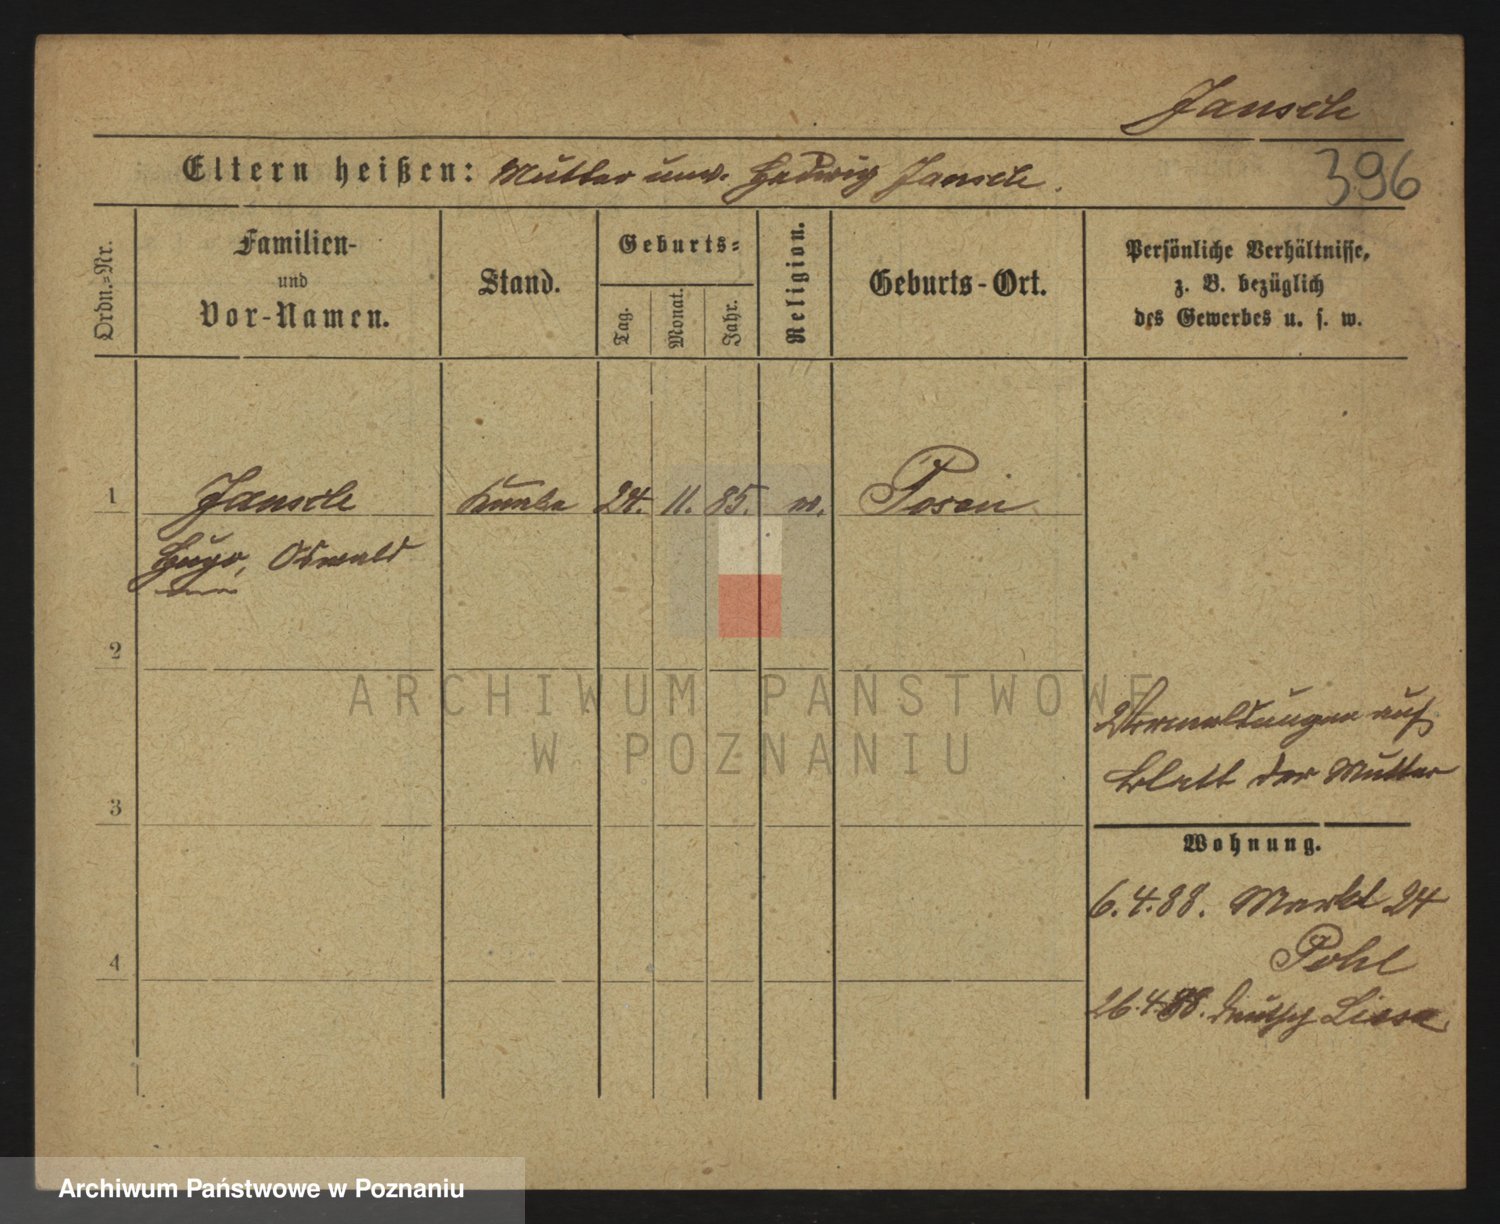 Jansch
Eltern heißen: Mutter unv. Hedwig Jansch.
396
Ordn.=Nr.
Familien-
und
Vor-Namen.
Stand.
Geburts=
Tag.
Monat.
Jahr.
Religion.
Geburts-Ort.
Persönliche Verhältnisse,
z. B. bezüglich
des Gewerbes u. s. w.
1
Jansch
Knabe
24. 11. 85.
Posen
Hugo, Oswald
2
ARCHIWUM PAŃSTWOWE
W POZNANIU
Vormeldungen auf
Blatt der Mutter
3
Wohnung.
6.4.88. Markt 24
Pohl
4
26.4.88. Deutsch Lissa
Archiwum Państwowe w Poznaniu